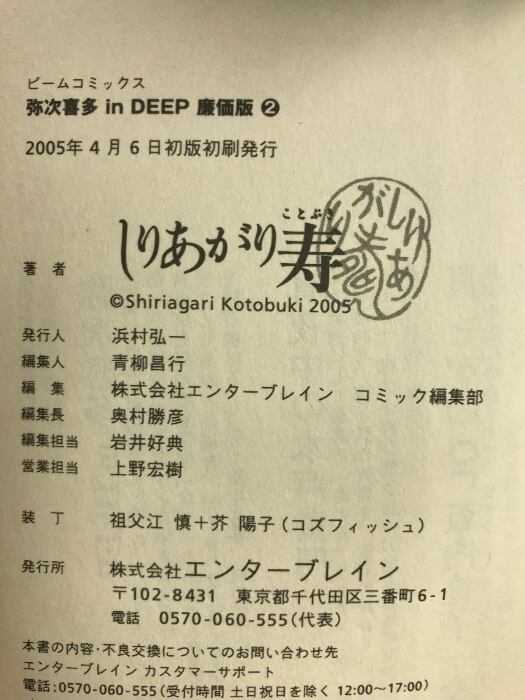 ビームコミックス
弥次喜多 in DEEP 廉価版 ❷
2005年4月6日初版初刷発行
ことぶき
著者 しりあがり寿
©Shiriagari Kotobuki 2005
発行人 浜村弘一
編集人 青柳昌行
編集 株式会社エンターブレイン コミック編集部
編集長 奥村勝彦
編集担当 岩井好典
営業担当 上野宏樹
装丁 祖父江 慎＋芥 陽子（コズフィッシュ）
発行所 株式会社エンターブレイン
〒102-8431 東京都千代田区三番町6-1
電話 0570-060-555（代表）
本書の内容・不良交換についてのお問い合わせ先
エンターブレイン カスタマーサポート
電話：0570-060-555（受付時間 土日祝日を除く 12:00〜17:00）